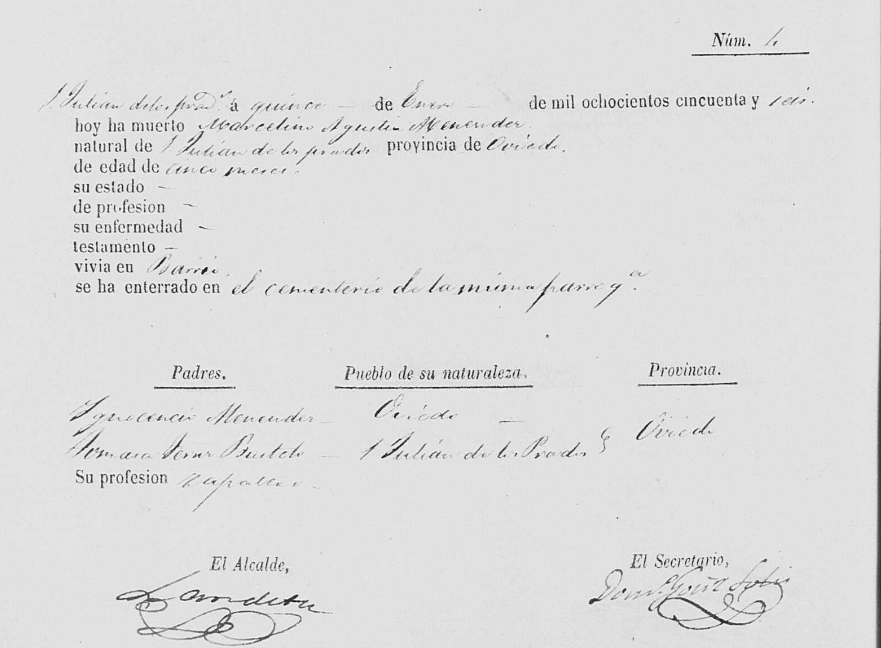 Núm. 4
S. Julián de los prad.s á quince — de Enero — de mil ochocientos cincuenta y seis.
hoy ha muerto Marcelino Agustin Menendez.
natural de S Julián de los prados provincia de Oviedo.
de edad de cinco meses.
su estado —
de profesion —
su enfermedad —
testamento —
vivia en
se ha enterrado en el cementerio de la misma parroq.a
Padres. Pueblo de su naturaleza. Provincia.
Menendez — Oviedo —
Tomasa Bustelo — S Julián de los Prados Oviedo
Su profesion zapatero —
El Alcalde, El Secretario,